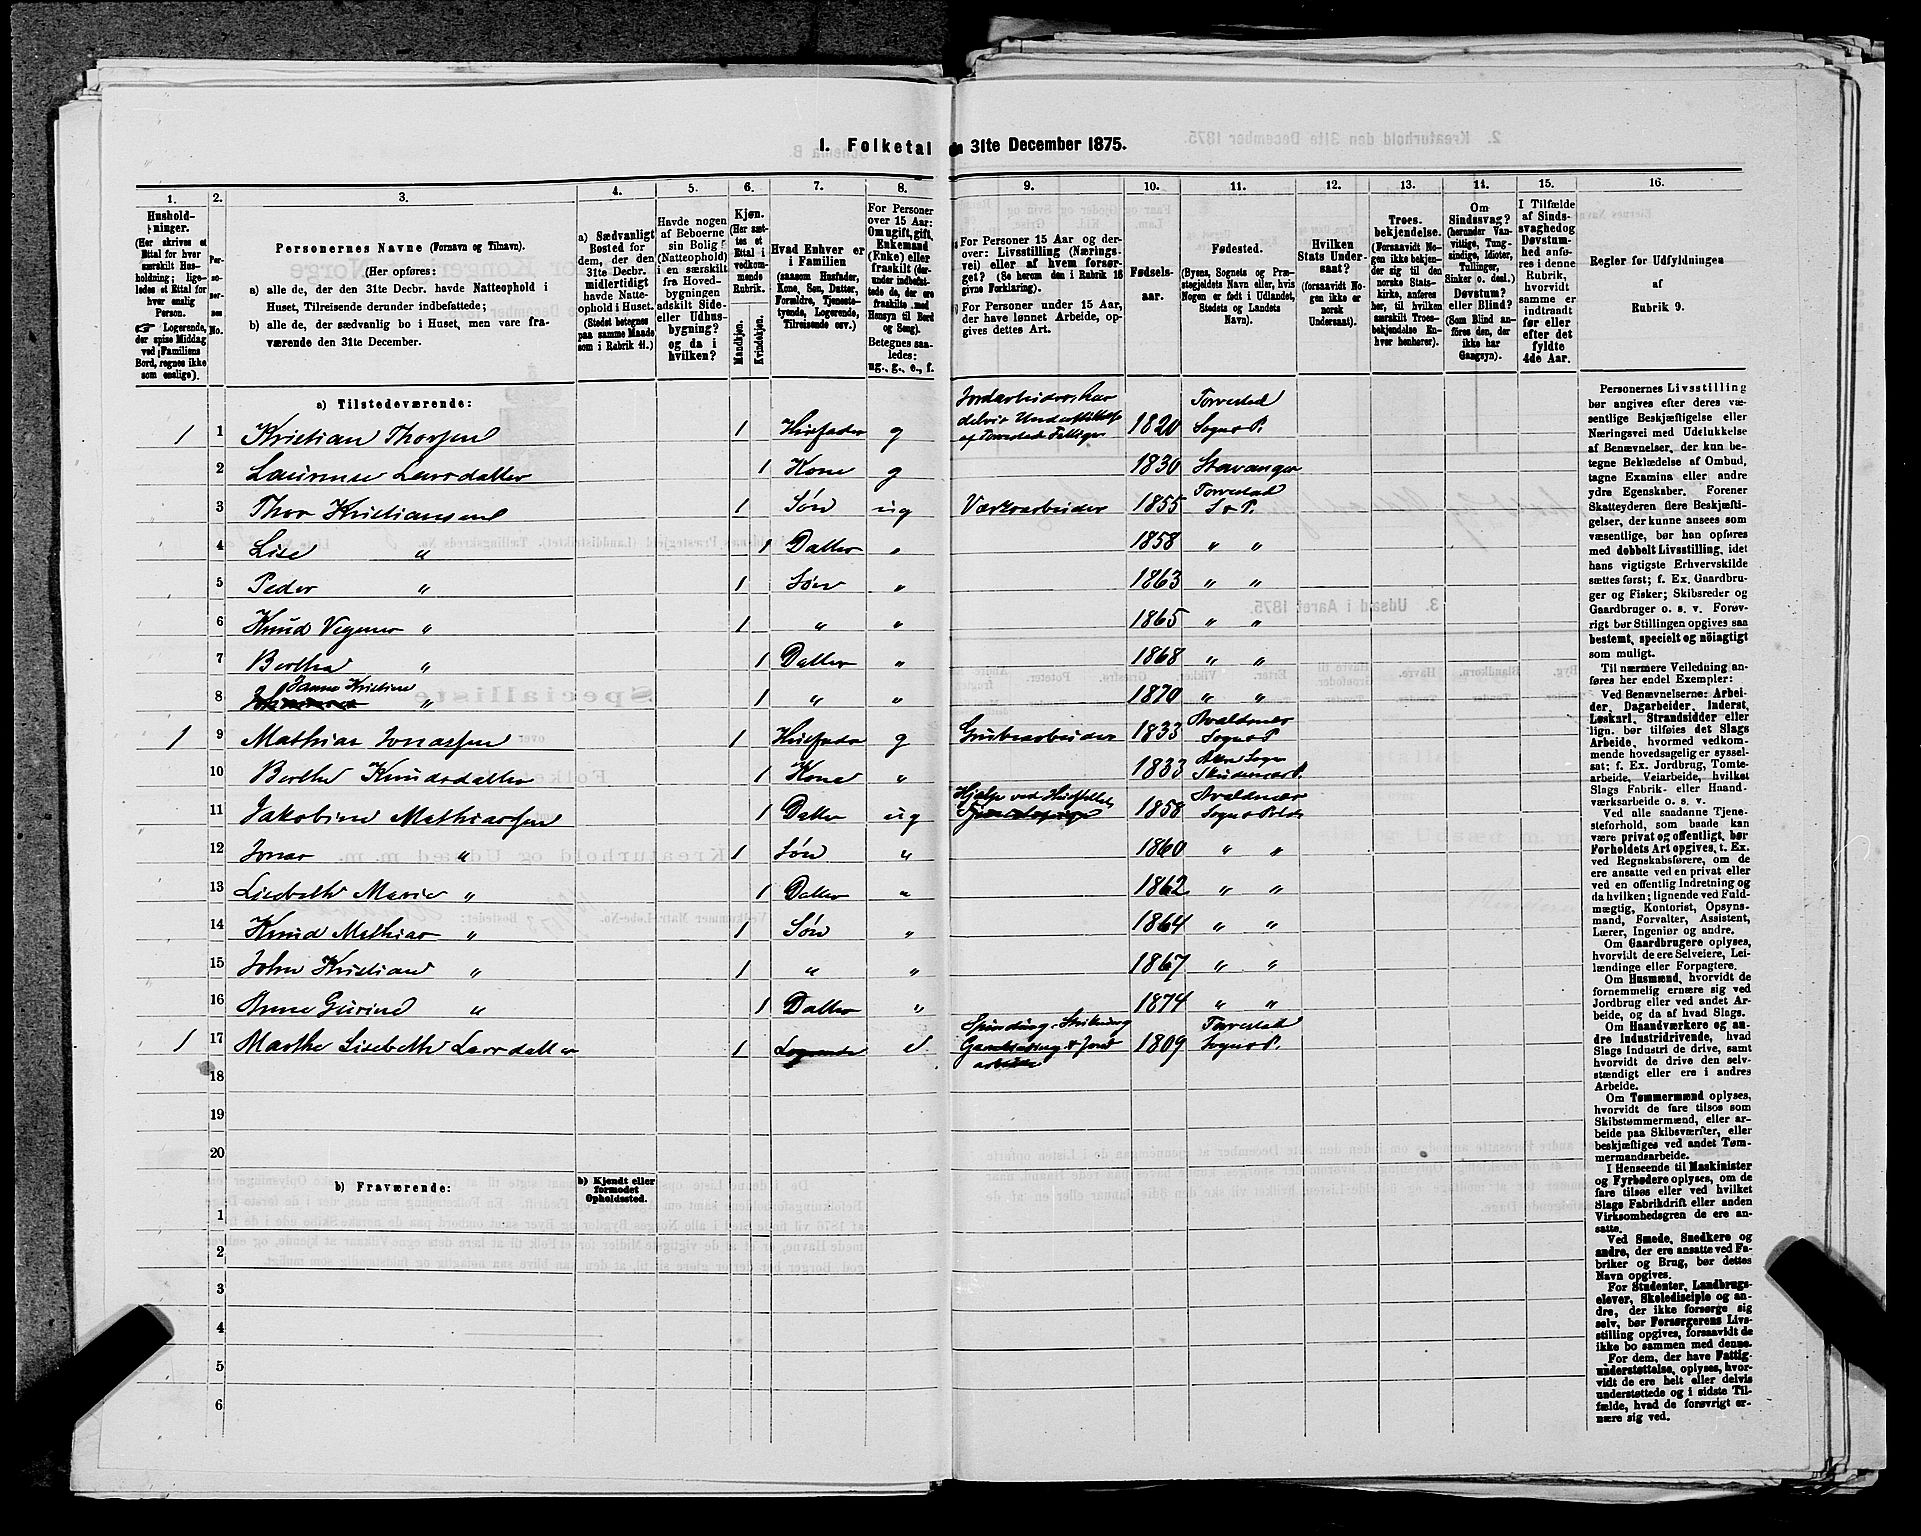 1. Folketal den 31te December 1875.
1. 2. 3. 4. 5. 6. 7. 8. 9. 10. 11. 12. 13. 14. 15. 16.
Husholdninger.
(Her skrives et Ettal for hver særskilt Husholdning; ligeledes et Ettal for hver enslig Person.
☞ Logerende, der spise Middag ved Familiens Bord, regnes ikke som enslige).
Personernes No.
Personernes Navne (Fornavn og Tilnavn).
(Her opføres:
a) alle de, der den 31te Decbr. havde Natteophold i Huset, Tilreisende derunder indbefattede;
b) alle de, der sædvanlig bo i Huset, men vare fraværende den 31te December.
a) Sædvanligt Bosted for dem, der den 31te Decbr. midlertidigt havde Natteophold i Huset.
(Stedet betegnes paa samme Maade som i Rubrik 11.)
Havde nogen af Beboerne sin Bolig (Natteophold) i en særskilt fra Hovedbygningen adskilt Side- eller Udhusbygning? og da i hvilken?
Kjøn.
(Her sættes et Ettal i vedkommende Rubrik.
Mandkjøn.
Kvindekjøn.
Hvad Enhver er i Familien
(saasom Husfader, Kone, Søn, Datter, Forældre, Tjenestetyende, Logerende, Tilreisende osv.)
For Personer over 15 Aar: Om ugift, gift, Enkemand (Enke) eller fraskilt (derunder indbefattede de, der ere fraskilte med Hensyn til Bord og Seng).
Betegnes saaledes: ug., g., e., f.
For Personer 15 Aar og derover: Livsstilling (Næringsvei) eller af hvem forsørget? (Se herom den i Rubrik 16 givne Forklaring).
For Personer under 15 Aar, der have lønnet Arbeide, opgives dettes Art.
Fødselsaar.
Fødested.
(Byens, Sognets og Præstegjeldets Navn eller, hvis Nogen er født i Udlandet, Stedets og Landets Navn).
Hvilken Stats Undersaat?
(forsaavidt Nogen ikke er norsk Undersaat).
Troesbekjendelse.
(Forsaavidt Nogen ikke bekjender sig til den norske Statskirke, anføres her, til hvilken særskilt Troesbekjendelse Enhver henhører).
Om Sindssvag? (herunder Vanvittige, Tungsindige, Idioter, Tullinger, Sinker o. desl.)
Døvstum? eller Blind? (Som Blind anføres den, der ikke har Gangsyn).
I Tilfælde af Sindssvaghed og Døvstumhed anføres i denne Rubrik, hvorvidt samme er indtraadt før eller efter det fyldte 4de Aar.
Regler for Udfyldningen af Rubrik 9.
a) Tilstedeværende:
1 1 Kristian Thorsen 1 Husfader g Jordarbeider, har delvis Understøttelse af Torvestads Fattigv. 1820 Torvestad Sogn & P.
2 Laurense Larsdatter 1 Kone g 1830 Stavanger
3 Thor Kristiansen 1 Søn ug Værksarbeider 1855 Torvestad S & P.
4 Lise " 1 Datter " 1858 " "
5 Peder " 1 Søn " 1863 " "
6 Knud Vegner " 1 " " 1865 " "
7 Bertha " 1 Datter " 1868 " "
8 Janne Kristine " 1 " " 1870 " "
1 9 Mathias Jonassen 1 Husfader g Grubearbeider 1833 Avaldsnæs Sogn & P
10 Berthe Knudsdatter 1 Kone " 1833 Sogn Skudenæs P.
11 Jakobine Mathiassen 1 Datter ug Hjælp ved Husstellet 1858 Avaldsnæs Sogn & Pgld
12 Jonas " 1 Søn " 1860 " "
13 Lisebeth Marie " 1 Datter " 1862 " "
14 Knud Mathias " 1 Søn " 1864 " "
15 John Kristian " 1 " " 1867 " "
16 Anne Gurine " 1 Datter " 1874 " "
1 17 Marthe Lisebeth Larsdatter 1 Logerende Spinding, Strikning & Jordarbeide 1809 Torvestad Sogn & P.
18
19
20
b) Fraværende:
b) Kjendt eller formodet Opholdssted.
1
2
3
4
5
6
Personernes Livsstilling
bør angives efter deres væ-
sentlige Beskjæftigelse eller
Næringsvei med Udelukkelse
af Benævnelser, der kun be-
tegne Beklædelse af Ombud,
tagne Examina eller andre
ydre Egenskaber. Forener
Skatteyderen flere Beskjæfti-
gelser, der kunne ansees som
væsentlige, bør han opføres
med dobbelt Livsstilling, idet
hans vigtigste Erhvervskilde
sættes først; f. Ex. Gaardbru-
ger og Fisker; Skibsreder og
Gaardbruger o. s. v. Forøv-
rigt bør Stillingen opgives saa
bestemt, specielt og nöiagtigt
som muligt.
Til nærmere Veiledning an-
føres her endel Exempler:
Ved Benævnelserne: Arbei-
der, Dagarbeider, Inderst,
Løskarl, Strandsidder eller
lign. bør tilføies det Slags
Arbeide, hvormed vedkom-
mende hovedsagelig er syssel-
sat; f. Ex. Jordbrug, Tomte-
arbeide, Veiarbeide, hvilket
Slags Fabrik- eller Haand-
værksarbeide o. s. v.
Ved alle saadanne Tjene-
steforhold, som baade kan
være privat og offentligt, bør
Forholdets Art opgives, t. Ex.
ved Regnskabsførere, om de
ere ansatte ved en privat eller
ved en offentlig Indretning og
da hvilken; lignende ved Fuld-
mægtig, Kontorist, Opsyns-
mand, Forvalter, Assistent,
Lærer, Ingeniør og andre.
Om Gaardbrugere oplyses,
hvorvidt de ere Selveiere, Lei-
lændinge eller Forpagtere.
Om Husmænd, hvorvidt de
fornemmelig ernære sig ved
Jordbrug eller ved andet Ar-
beide, og da af hvad Slags.
Om Haandværkere og an-
dre Industridrivende, hvad
Slags Industri de drive, samt
hvorvidt de drive den selv-
stændigt eller ere i andres
Arbeide.
Om Tømmermænd oplyses,
hvorvidt de fare tilsøs som
Skibstømmermænd, eller ar-
beide paa Skibsværfter, eller
beskjæftiges ved andet Tøm-
mermandsarbeide.
I Henseende til Maskinister
og Fyrbødere oplyses, om de
fare tilsøs eller ved hvilket
Slags Fabrikdrift eller anden
Virksomhedsgren de ere an-
satte.
Ved Smede, Snedkere og
andre, der ere ansatte ved Fa-
briker og Brug, bør dettes
Navn opgives.
For Studenter, Landbrugs-
elever, Skoledisciple og an-
dre, der ikke forsørge sig
selv, bør Forsørgerens Livs-
stilling opgives, forsaavidt de
ikke bo sammen med denne.
For dem, der have Fattig-
understøttelse, oplyses, hvor-
vidt de ere helt eller delvis
understøttede og i sidste Til-
fælde, hvad de forøvrigt er-
nære sig ved.